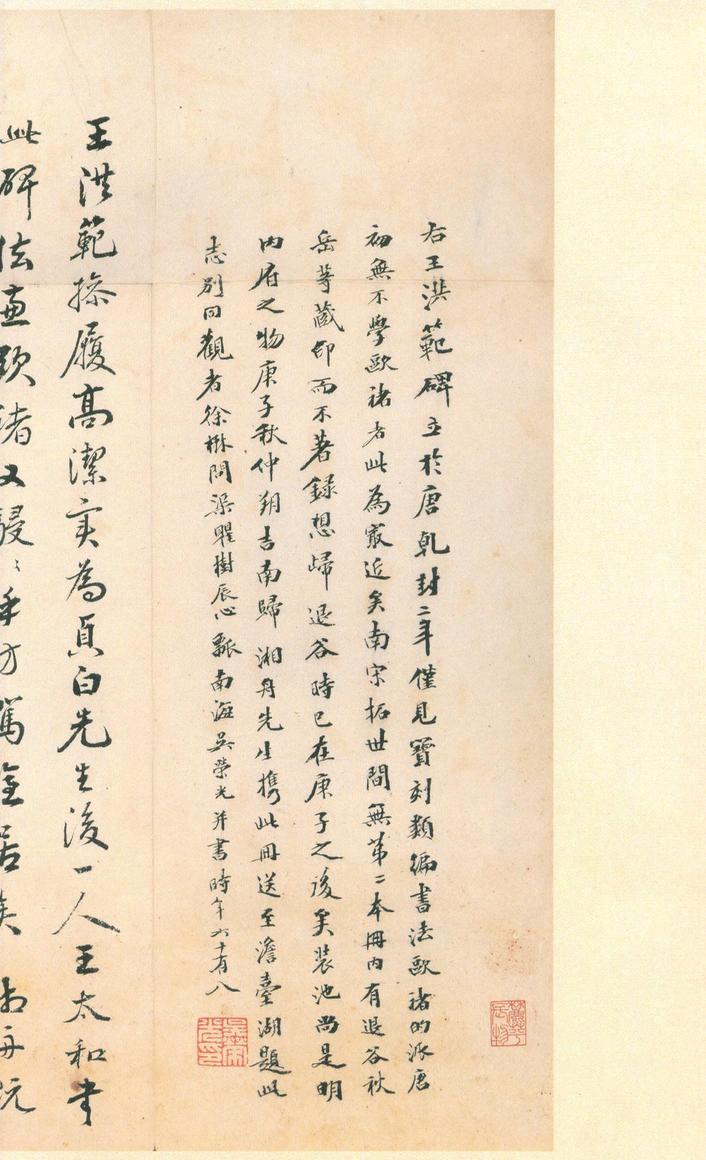 右王洪範碑立於唐乹封二年僅見寶刻類編書法歐褚的派唐
初無不學歐褚者此為冣近矣南宋拓世間無第二本冊內有退谷秋
岳等藏印而不著錄想歸退谷時已在庚子之後矣裝池尚是明
內府之物庚子秋仲朔吉南歸湘舟先生攜此冊送至澹臺湖題此
志別同觀者徐楙問渠瞿樹辰心瓢南海吳榮光并書時年六十有八
王洪範操履高潔实為貞白先生後一人王太和書
此碑法兼歐褚又駸〻乎方駕